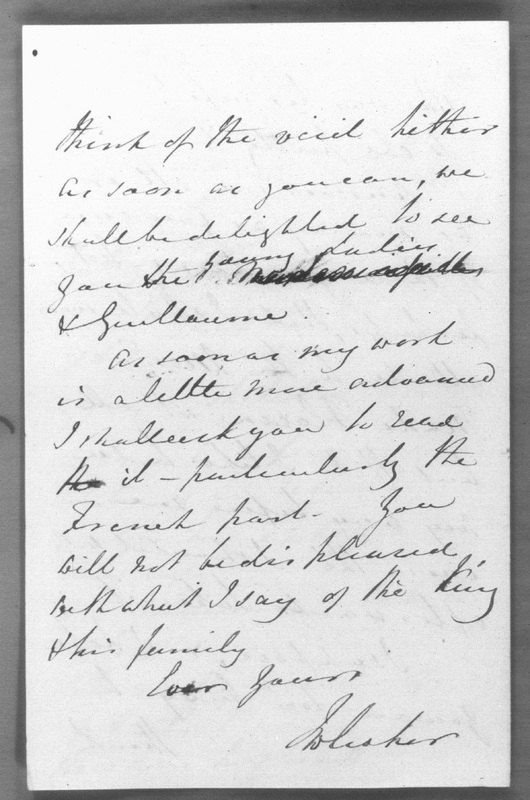 think of the visit hither
as soon as you can, we
shall be delighted to see
you the young Ladies
& Guillaume.
As soon as my work
is a little more advanced
I shall ask you to read
the it – particularly the
French part – You
will not be displeased
with what I say of the King
& his family
Ever Yours
JWCroker